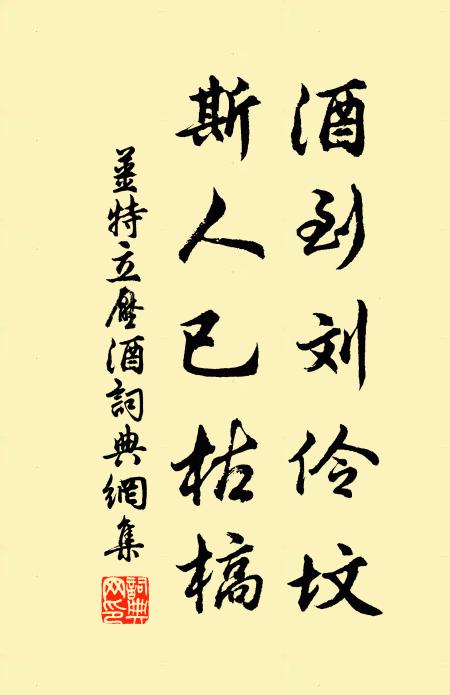 酒到刘伶坟
斯人已枯槁
姜特立壓酒詞典網集
詞典